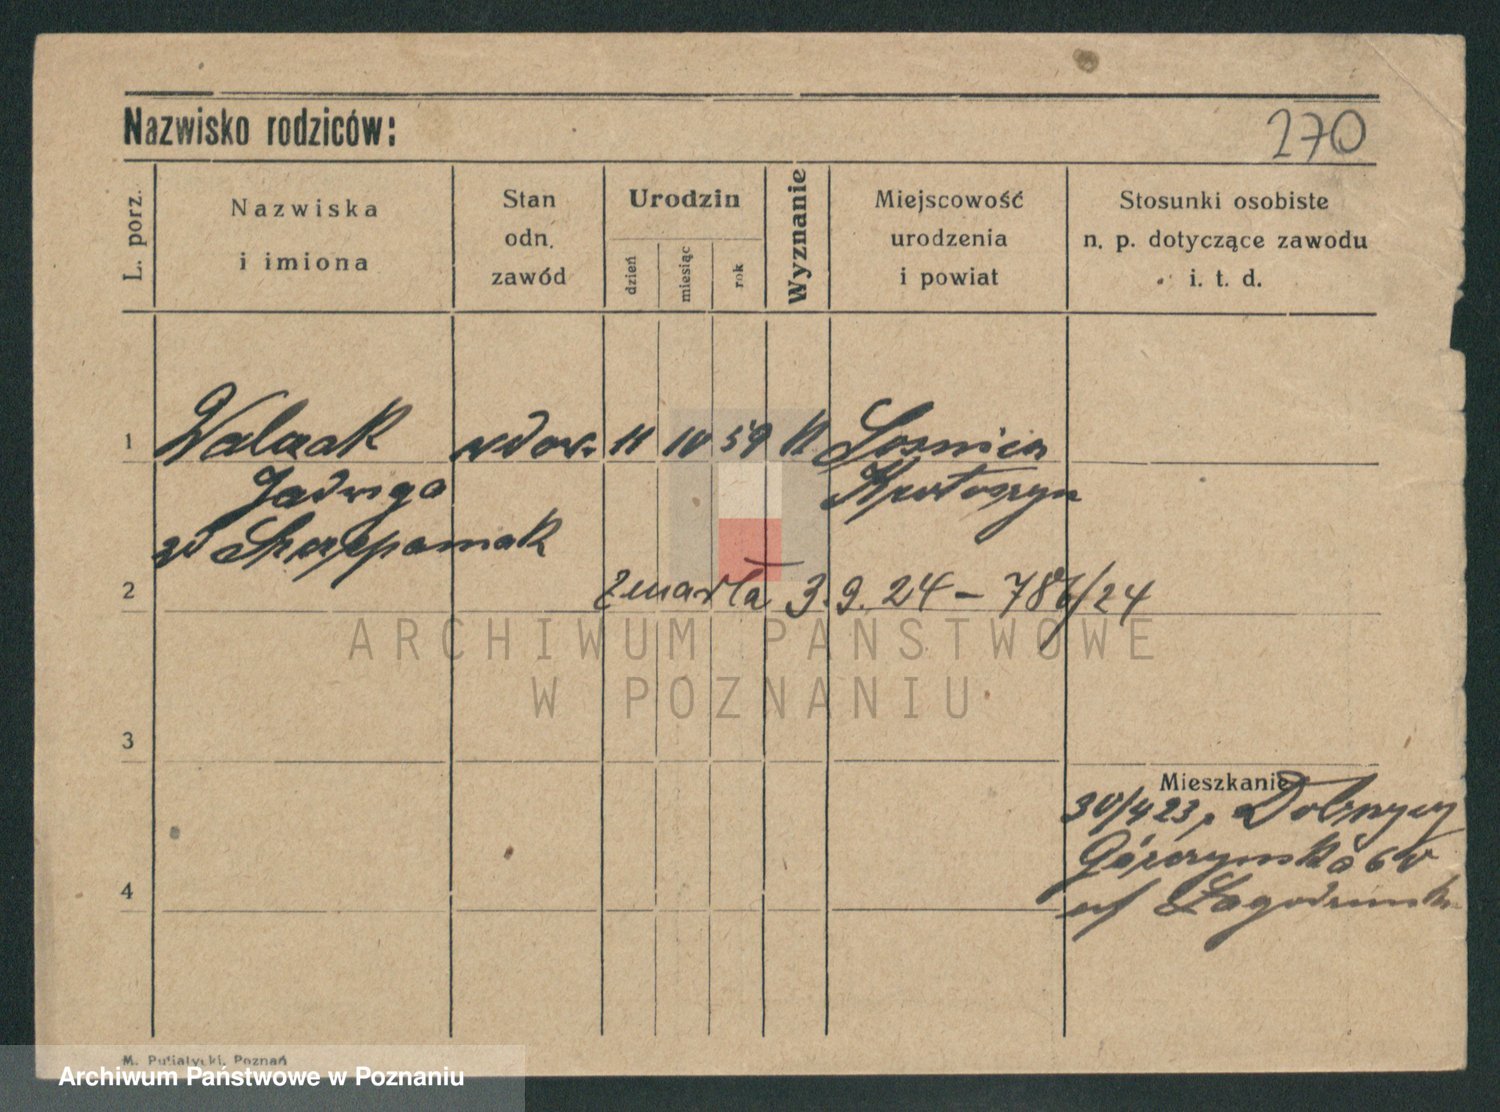 Nazwisko rodziców:
270
L. porz.
Nazwiska
i imiona
Stan
odn.
zawód
Urodzin
dzień
miesiąc
rok
Wyznanie
Miejscowość
urodzenia
i powiat
Stosunki osobiste
n. p. dotyczące zawodu
i. t. d.
1
Walczak wdow. 11 10 59 K Sosnica
Jadwiga Krotoszyn
zd Szczepaniak
2
zmarła 3.9.24 – 786/24
ARCHIWUM PAŃSTWOWE
W POZNANIU
3
Mieszkanie
30/4 23,
Górczyńska
4
M. Putiatycki, Poznań
Archiwum Państwowe w Poznaniu